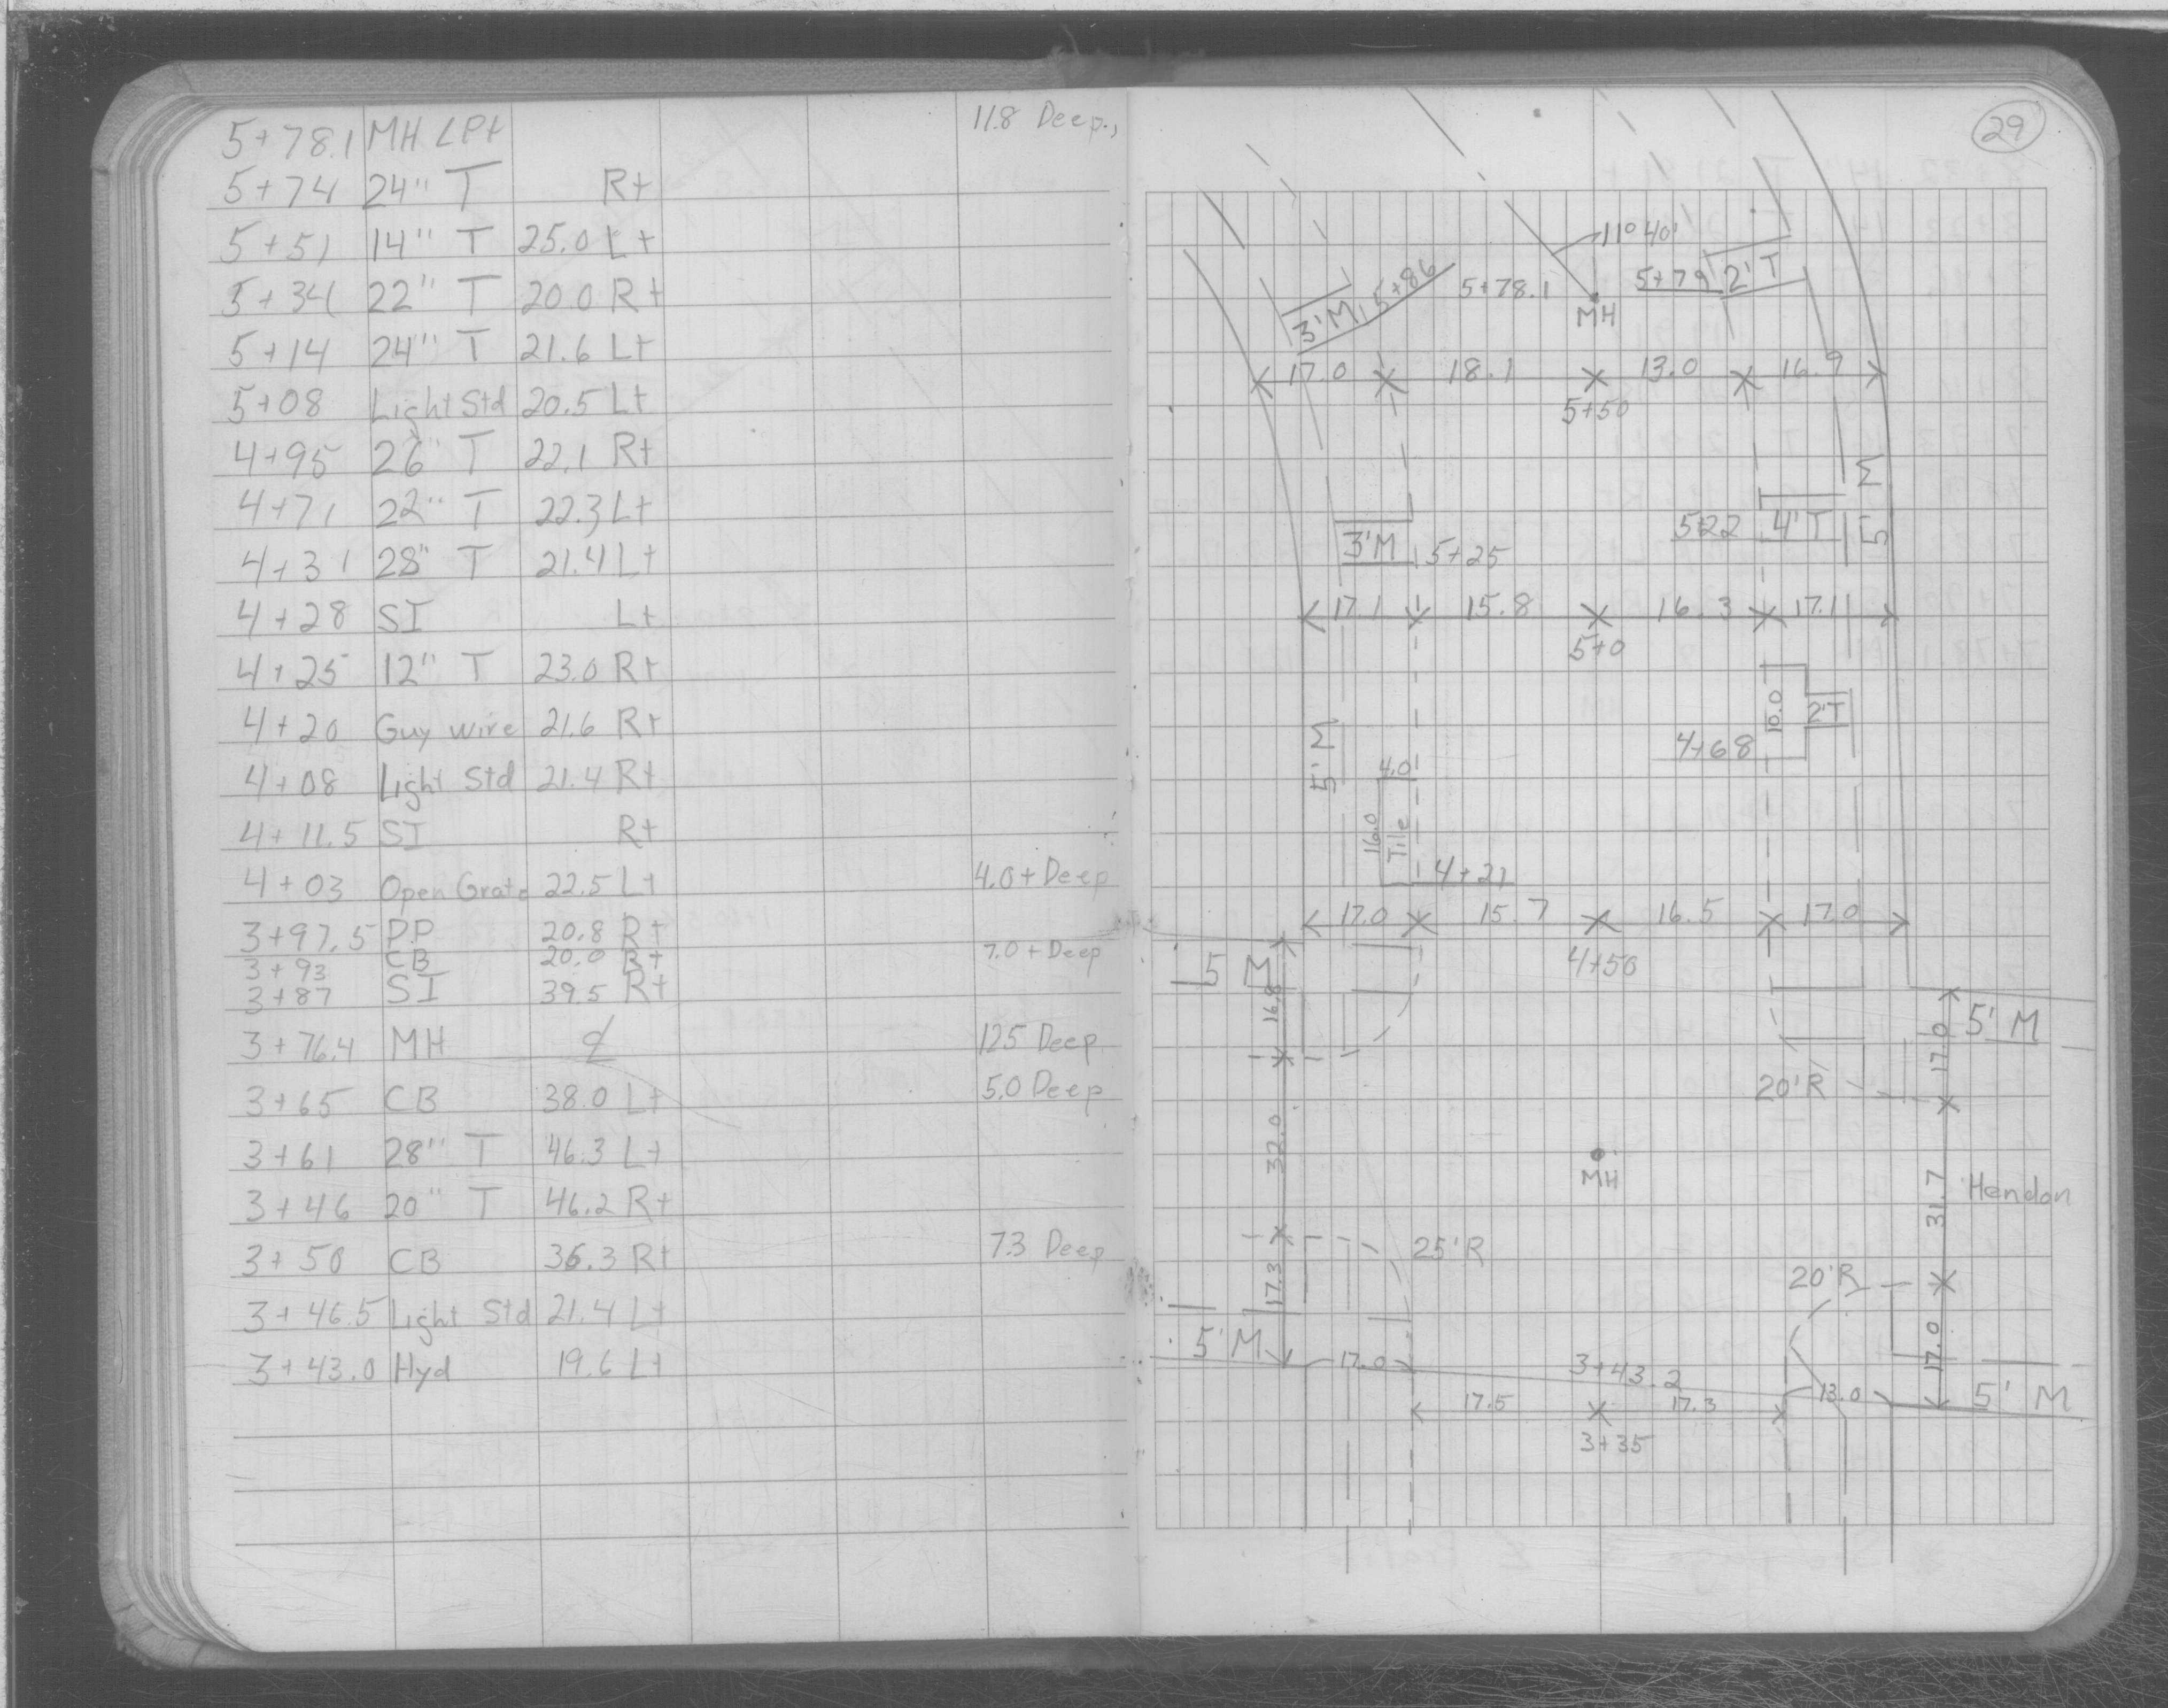 5+78.1 MH ∠Pt 11.8 Deep.,
5+74 24" T Rt
5+51 14" T 25.0 Lt
5+34 22" T 20.0 Rt
5+14 24" T 21.6 Lt
5+08 Light Std 20.5 Lt
4+95 26" T 22.1 Rt
4+71 22" T 22.3 Lt
4+31 28" T 21.4 Lt
4+28 SI Lt
4+25 12" T 23.0 Rt
4+20 Guy wire 21.6 Rt
4+08 Light Std 21.4 Rt
4+11.5 SI Rt
4+03 Open Grate 22.5 Lt 4.0+Deep
3+97.5 PP 20.8 Rt
3+93 CB 20.0 Rt 7.0+Deep
3+87 SI 39.5 Rt
3+76.4 MH ℄ 12.5 Deep
3+65 CB 38.0 Lt 5.0 Deep
3+61 28" T 46.3 Lt
3+46 20" T 46.2 Rt
3+50 CB 36.3 Rt 7.3 Deep
3+46.5 Light Std 21.4 Lt
3+43.0 Hyd 19.6 Lt
29
11°40'
3'M 5+86 5+78.1 MH 5+79 2'T
17.0 18.1 13.0 16.9
5+50
5' M
3'M 5+25 5+22 4'T
17.1 15.8 16.3 17.1
5+0
5' M
10.0 2'T
4+68
4.0
16.0 Tile
4+21
17.0 15.7 16.5 17.0
4+50
5 M 16.8
17.0 5' M
20'R
32.0
MH
31.7 Hendon
25'R
20'R
17.3
5' M
17.0
17.0 3+43.2
17.5 17.3 13.0 5' M
3+35